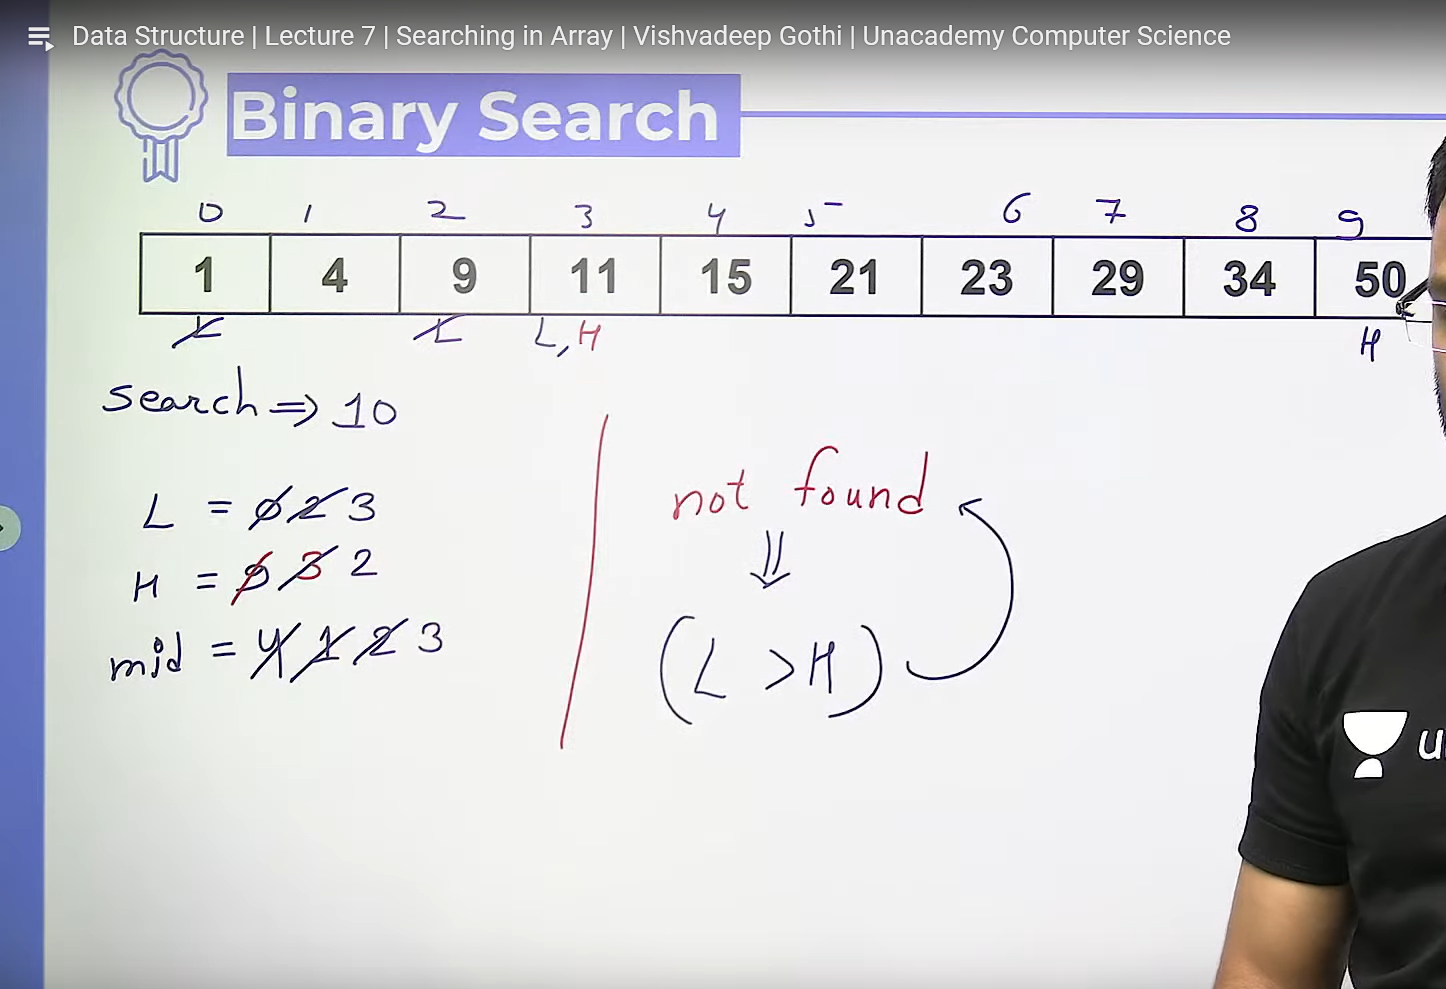 Data Structure | Lecture 7 | Searching in Array | Vishvadeep Gothi | Unacademy Computer Science
Binary Search
0 1 2 3 4 5 6 7 8 9
1 4 9 11 15 21 23 29 34 50
L L L, H H
search ⇒ 10
L = 0 2 3
H = 9 3 2
mid = 4 1 2 3
not found
⇓
(L > H)
u